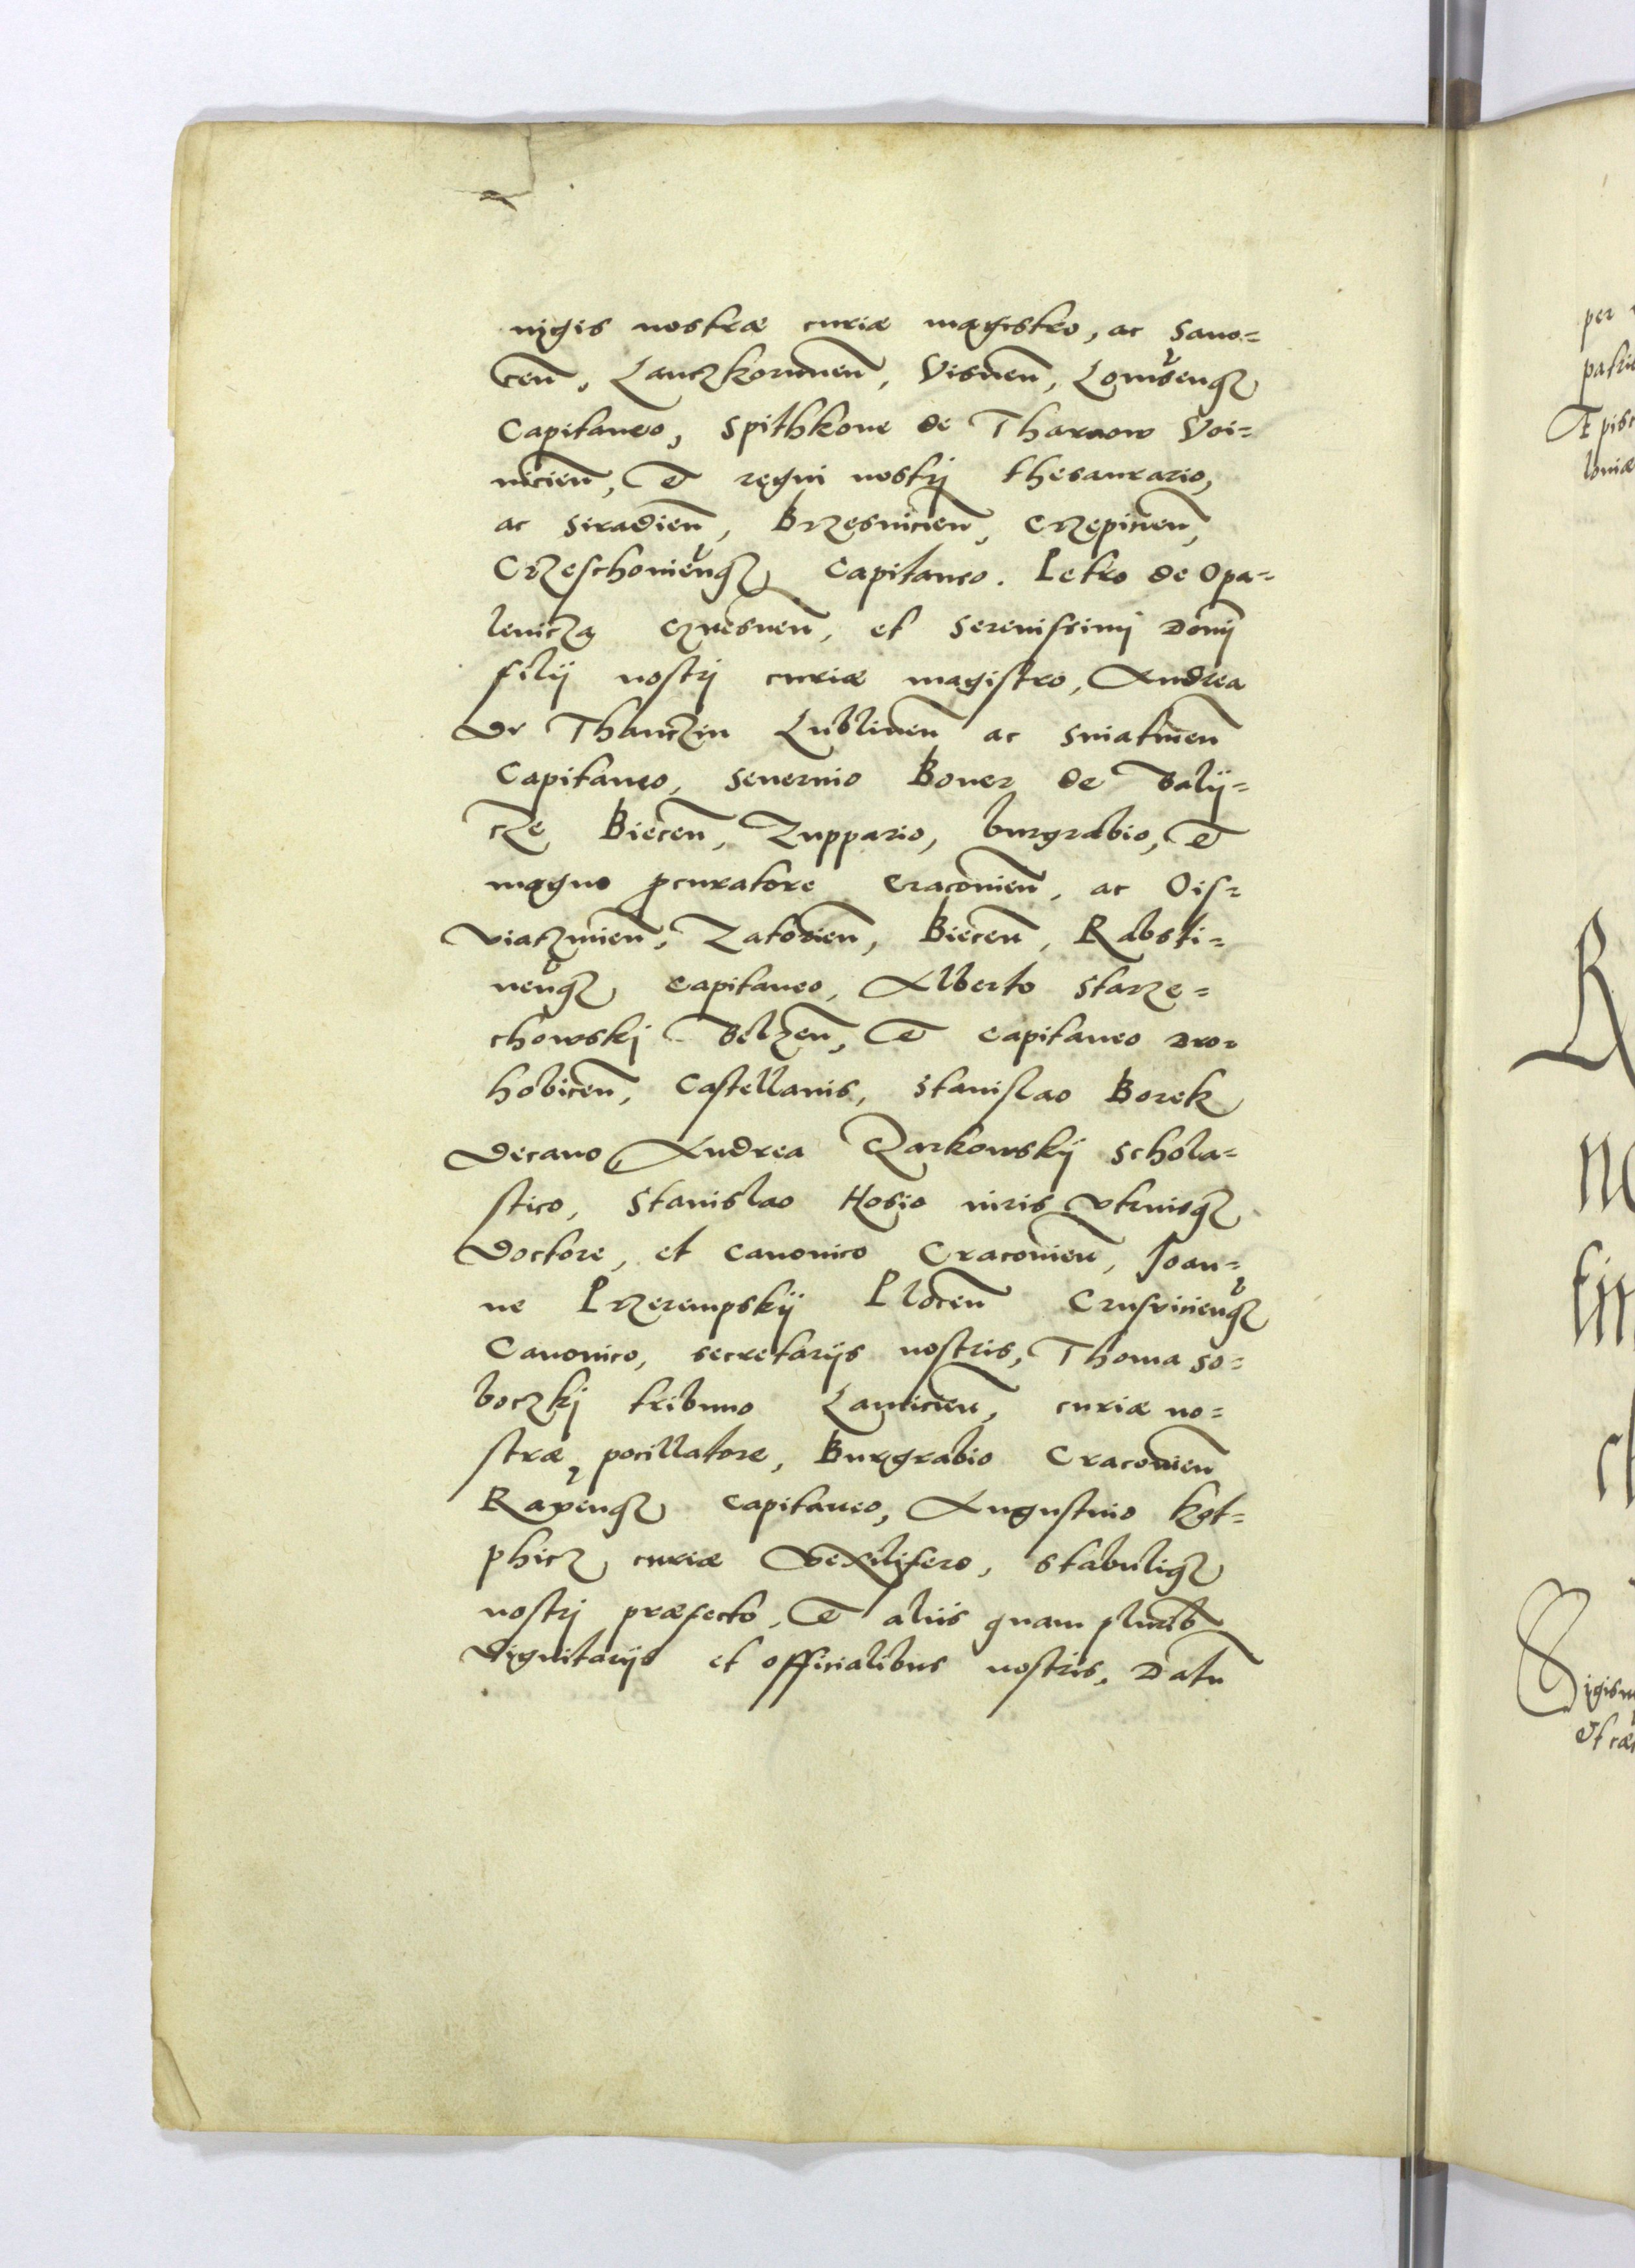 nigis nostræ curiæ magistro, ac Sano=
cen̄, Lanczkorunen̄, Visnen̄, Lomzenq3
Capitaneo, Spithkone de Tharnow Voi=
nicien̄, et regni nostrj thesaurario,
ac Siradien̄, Brzesnicien̄, Crzepicien̄,
Crzeschouien̄q3 Capitaneo. Petro de Opa=
leniczą Gnesnen̄, et Serenissimj Domj̄
filij nostrj curiæ magistro, Andrea
De Thanczin Lublinen̄ ac Sniatinen̄
Capitaneo, Seuerino Boner de Balij=
cze Biecen̄, Zuppario, burgrabio, et
magno ꝓcuratore Cracouien̄, ac Ois=
viaczmien̄, Zatorien̄, Biecen̄, Rabsti=
nen̄q3 Capitaneo, Alberto Starze=
chowskj Belzen̄, et Capitaneo Dro=
hobicen̄, Castellanis, Stanislao Borek
Decano Andrea Czarkowskij Schola=
stico, Stanislao Hosio iuris vtriusq3
Doctore, et Canonico Cracouien̄, Joan=
ne Przerempskij Plocen̄ Crusuicien̄q3
Canonico, secretarijs nostris, Thoma So=
boczkj tribuno Lancicien̄, curiæ no=
stræ pocillatore, Burgrabio Cracouien̄
Rauen̄q3 Capitaneo, Augustino Kot=
phicz curiæ vexilifero, stabuliq3
nostrj præfecto, et aliis quam plurib
Dignitarijs et officialibus nostris. Datu
per
patri
Episc
loniæ
R
no
fin
ch
Sigism
et cæ